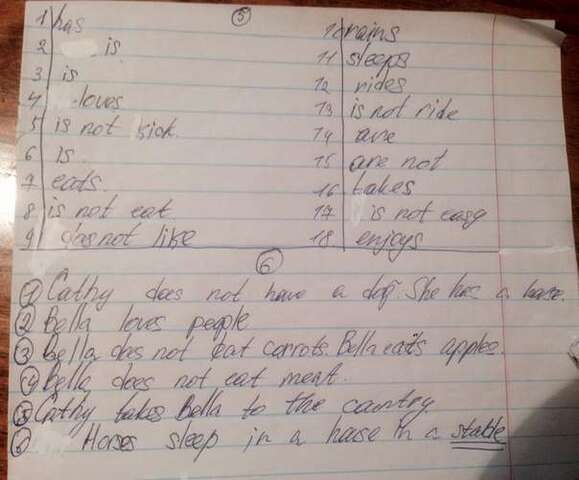 5
1 has
2 is
3 is
4 loves
5 is not kick.
6 is
7 eats.
8 is not eat
9 does not like
10 rains
11 sleeps
12 rides
13 is not ride
14 are
15 are not
16 takes
17 is not easy
18 enjoys
6
1 Cathy does not have a dog. She has a horse.
2 Bella loves people
3 Bella does not eat carrots. Bella eats apples.
4 Bella does not eat meat.
5 Cathy takes Bella to the country
6 Horses sleep in a house in a stable